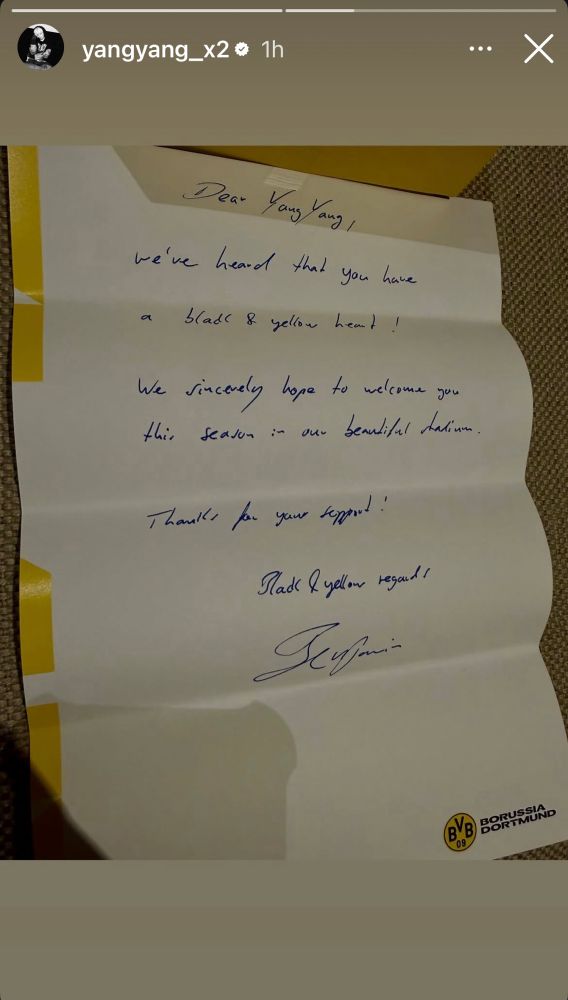 yangyang_x2 1h
Dear YangYang,
we've heard that you have
a black & yellow heart!
We sincerely hope to welcome you
this season in our beautiful stadium.
Thanks for your support!
Black & yellow regards
Benjamin
BVB
09
BORUSSIA
DORTMUND